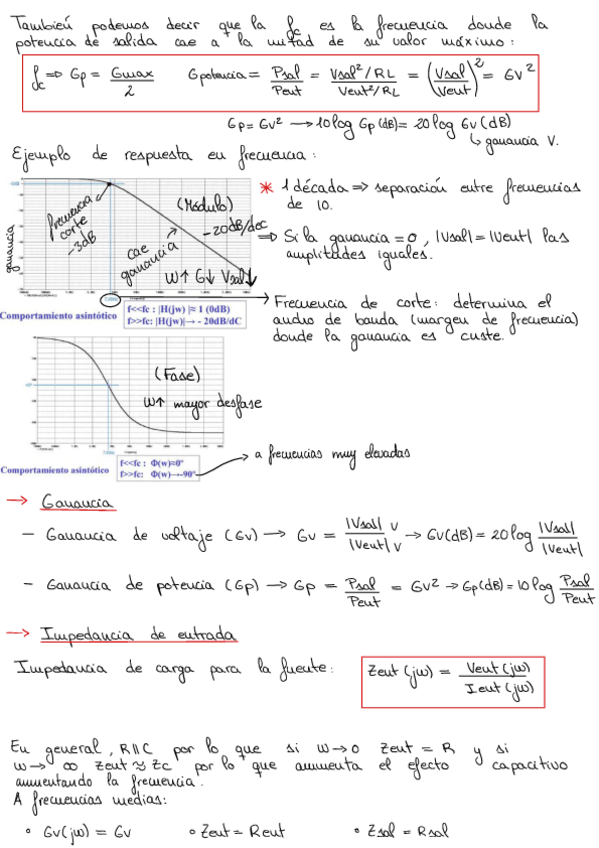 También podemos decir que la fc es la frecuencia donde la
potencia de salida cae a la mitad de su valor máximo:
fc => Gp = Gmax/2    Gpotencia = Psal/Pent = Vsal²/RL / Vent²/RL = (Vsal/Vent)² = Gv²
Gp = Gv² → 10 log Gp (dB) = 20 log Gv (dB)
↳ ganancia V.
Ejemplo de respuesta en frecuencia:
ganancia
frecuencia
corte
-3dB
(Módulo)
-20dB/dec
cae
ganancia
W↑ G↓ Vsal↓
* 1 década => separación entre frecuencias
de 10.
=> Si la ganancia = 0, |Vsal| = |Vent| las
amplitdades iguales.
→ Frecuencia de corte: determina el
ancho de banda (margen de frecuencia)
donde la ganancia es custe.
Comportamiento asintótico
f<<fc : |H(jw)|≈ 1 (0dB)
f>>fc: |H(jw)|→ - 20dB/dC
(Fase)
W↑ mayor desfase
Comportamiento asintótico
f<<fc : Φ(w)≈0º
f>>fc: Φ(w)→-90º
→ a frecuencias muy elevadas
→ Ganancia
- Ganancia de voltaje (Gv) → Gv = |Vsal| V / |Vent| V → Gv(dB) = 20 log |Vsal| / |Vent|
- Ganancia de potencia (Gp) → Gp = Psal/Pent = Gv² → Gp(dB) = 10 log Psal/Pent
→ Impedancia de entrada
Impedancia de carga para la fuente: Zent (jw) = Vent (jw) / Ient (jw)
En general, R||C por lo que si W→0 Zent = R y si
w→ ∞ Zent ≈ Zc por lo que aumenta el efecto capacitivo
aumentando la frecuencia.
A frecuencias medias:
° Gv(jw) = Gv    ° Zent = Rent    ° Zsal = Rsal